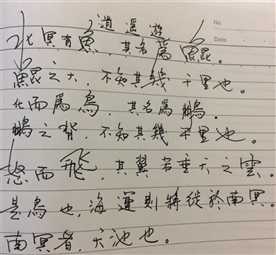 逍遥遊
北冥有魚，其名爲鯤。
鯤之大，不知其幾千里也。
化而爲鳥，其名爲鵬。
鵬之背，不知其幾千里也。
怒而飛，其翼若垂天之雲。
是鳥也，海運則將徙於南冥。
南冥者，天池也。